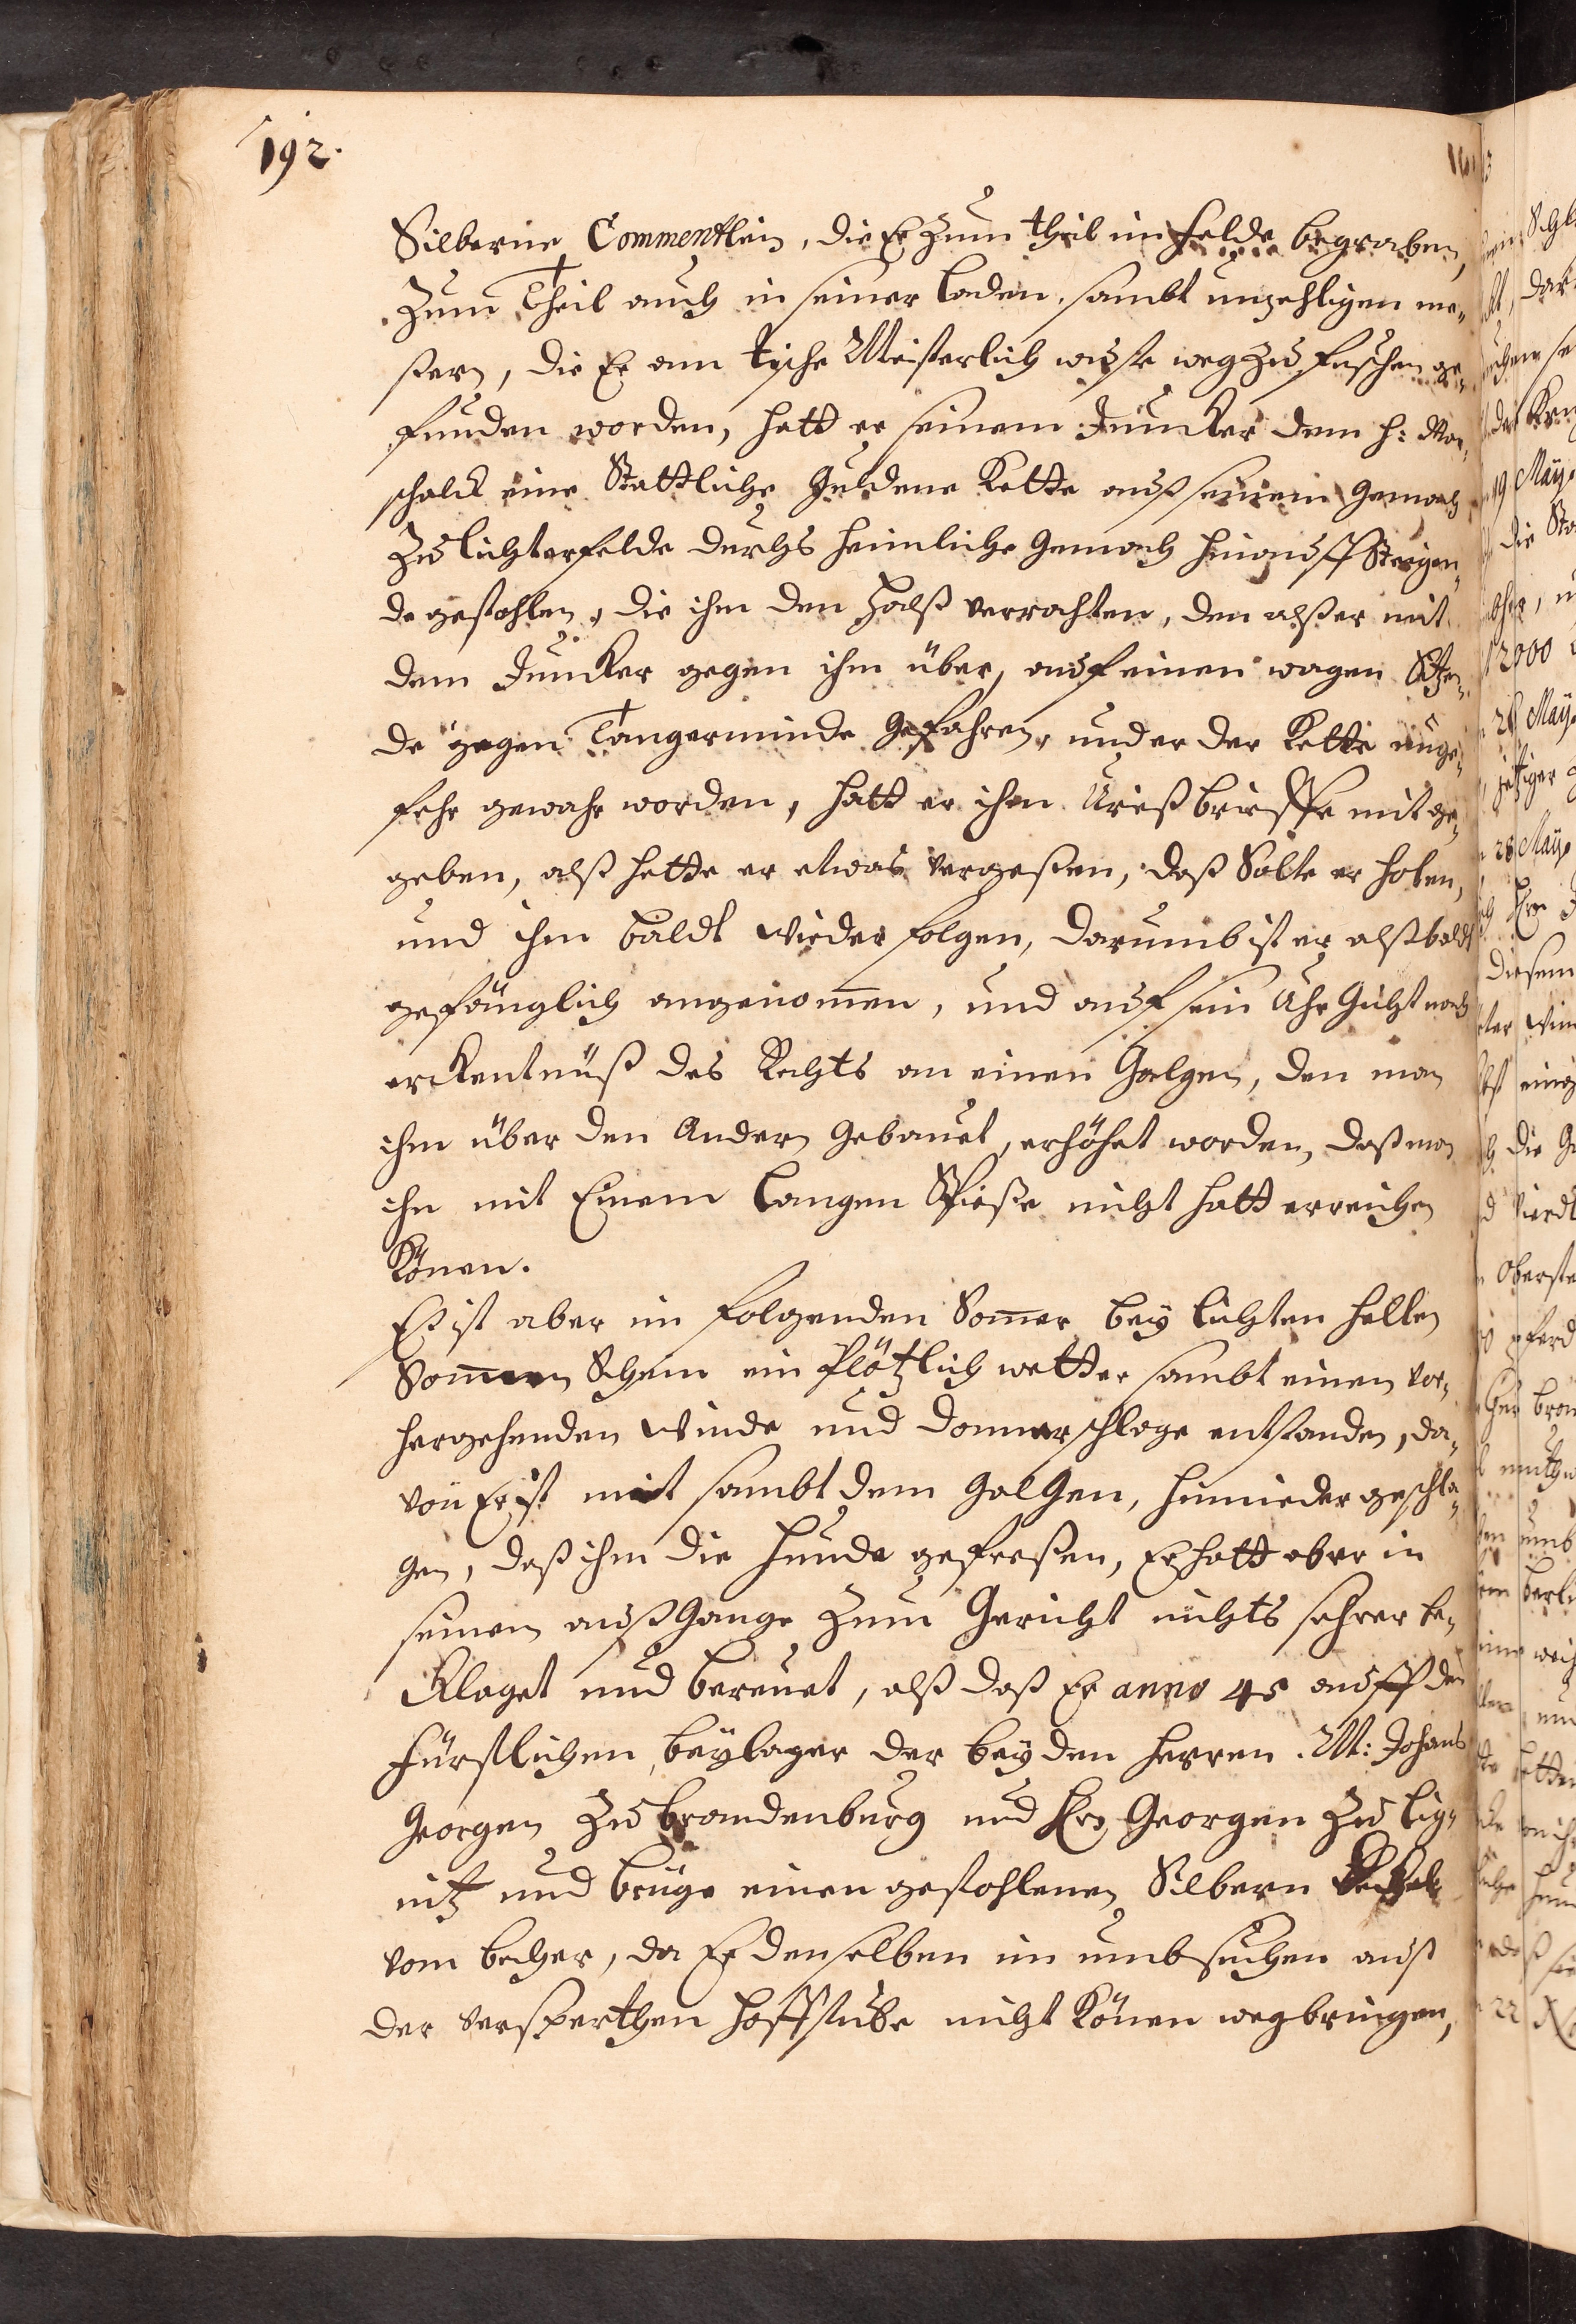 192.
Silberne Commentlein, die Er zum theil im Felde begraben,
Zum Theil auch in seiner Laden, sambt unzehligen me¬
ßern, die Er am tische Meisterlich wuste weg zu fuschen ge¬
funden worden, hatt er seinem Juncker dem H: Mar¬
schalck eine Stattliche Guldene Kette auß seinem Gemach
Zu Lichterfelde durchs heimliche Gemach hinauff Steigen¬
de gestohlen, die ihm den Halß verrahten, den alß er mit
dem Juncker gegen ihm über, auf einen wagen Sitzen¬
de gegen Tangerminde gefahren, und er der Kette unge¬
fehr gewahr worden, hatt er ihm Urießbrieffe mit ge¬
geben, alß hette er etwas vergeßen, daß Solte er holen,
und ihm baldt wieder folgen, darumb ist er alßbaldt
gefänglich angenommen, und auf sein Uhr Gicht nach
erkentnüß des Rechts an einen Galgen, den man
ihm über den Andern gebauet, erhöhet worden, daß man
ihn mit Einem Langen Spieße nicht hatt erreichen
Können.
Es ist aber im folgenden Sommer bey lichten hellen
Sonnen Schein ein Plötzlich wetter sambt einen vor¬
hergehenden Winde und donnerschlage entstanden, da¬
von Er ist mit sambt dem GalGen, hernieder geschla¬
gen, daß ihm die Hunde gefreßen, Er hatt aber in
seinem außGange Zum Gericht nichts sehrer be¬
Klaget und bereuet, alß daß Er anno 45 auff den
Fürstlichen beylager der beyden Herren M: Johans
Georgen Zu Brandenburg und Hrn Georgen Zu Lig¬
nitz und brüge einen gestohlenen Silbern
vom becher, da Er denselben im umbsuchen aus
der versperthen Hoffstube nicht Können wegbringen,